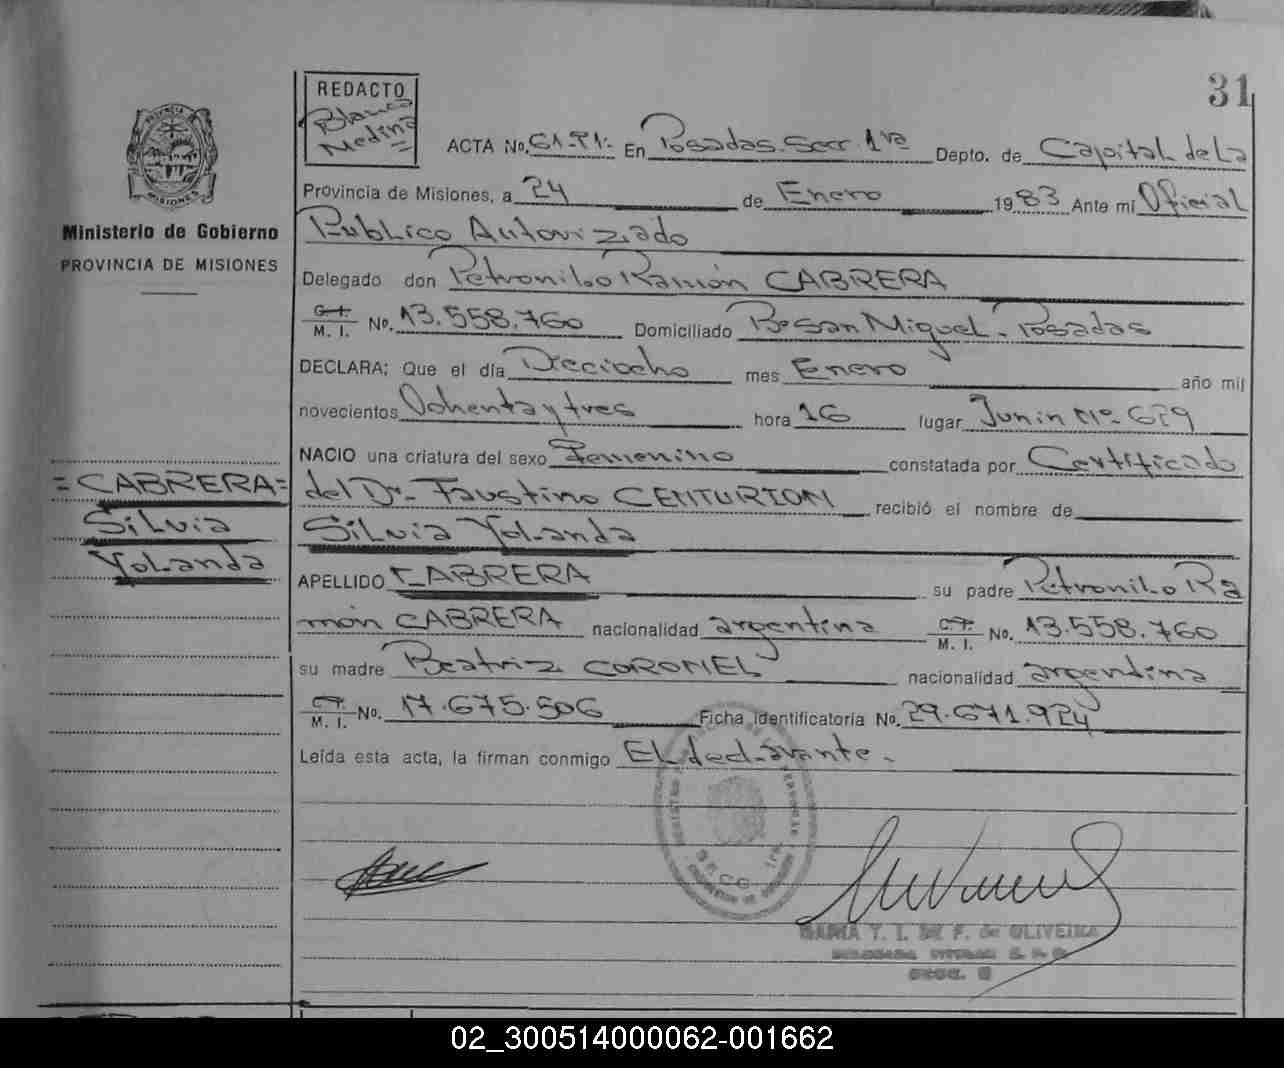 31
REDACTO
Blanca
Medina
ACTA No. 61-T1- En Posadas. Secc 1ra Depto. de Capital de La
Provincia de Misiones, a 24 de Enero 1983 Ante mi Oficial
Publico Autorizado
Delegado don Petronilo Ramón CABRERA
C. I.
M. I. No. 13.558.760 Domiciliado Bo San Miguel - Posadas
DECLARA: Que el día Dieciocho mes Enero año mil
novecientos Ochenta y tres hora 16 lugar Junin No- 629
NACIO una criatura del sexo Femenino constatada por Certificado
del Dr- Faustino CENTURION recibió el nombre de
Silvia Yolanda
APELLIDO CABRERA su padre Petronilo Ra
món CABRERA nacionalidad argentina C. I.
M. I. No. 13.558.760
su madre Beatriz CORONEL nacionalidad argentina
C. I.
M. I. No. 17.675.506 Ficha identificatoria No. 29.671.924
Leída esta acta, la firman conmigo El declarante.-
PROVINCIA DE
MISIONES
Ministerio de Gobierno
PROVINCIA DE MISIONES
=CABRERA=
Silvia
Yolanda
SECC. 1ra
MARIA Y. I. DE F. de OLIVEIRA
02_300514000062-001662